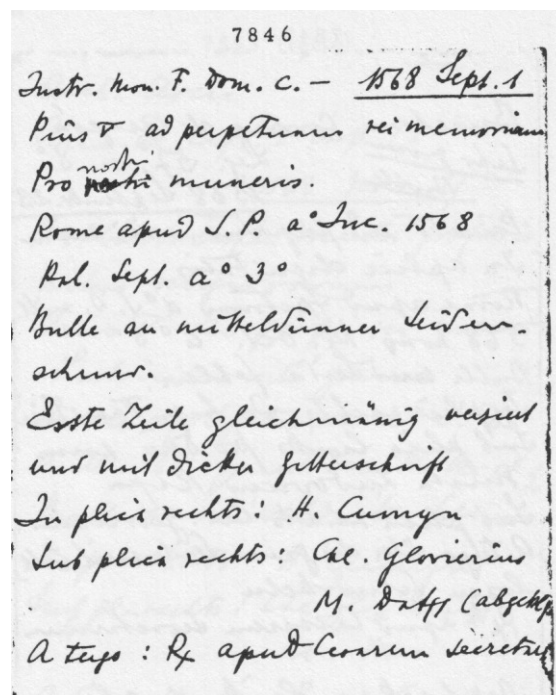 7846
Instr. Mon. F. Dom. C. — 1568 Sept. 1
Pius V ad perpetuam rei memoriam
Pro nostri muneris.
Rome apud S. P. a° Inc. 1568
Kal. Sept. a° 3°
Bulle an mitteldünner Seiden-
schnur.
Erste Zeile gleichmässig verziert
und mit dicker Gitterschrift
In plica rechts: H. Cumyn
Sub plica rechts: Cae. Glorierius
M. Datff (abgekü
A tergo: Rx apud Cesarem secretar